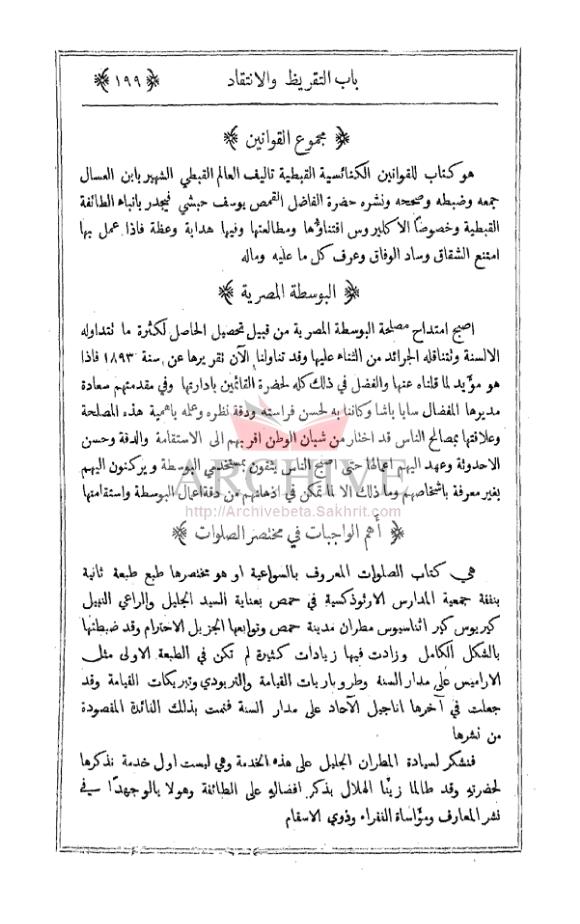 باب التقريظ والانتقاد ﴿١٩٩﴾
﴿ مجموع القوانين ﴾
هو كتاب للقوانين الكنائسية القبطية تاليف العالم القبطي الشهير بابن العسال
جمعه وضبطه وصححه ونشره حضرة الفاضل القمص يوسف حبشي فيجدر بانباه الطائفة
القبطية وخصوصًا الاكليروس اقتناؤها ومطالعتها وفيها هداية وعظة فاذا عمل بها
امتنع الشقاق وساد الوفاق وعرف كل ما عليه وماله
﴿ البوسطة المصرية ﴾
اصبح امتداح مصلحة البوسطة المصرية من قبيل تحصيل الحاصل لكثرة ما تتداوله
الالسنة وتتناقله الجرائد من الثناء عليها وقد تناولنا الآن تقريرها عن سنة ١٨٩٣ فاذا
هو مؤيد لما قلناه عنها والفضل في ذلك كله لحضرة القائمين بادارتها وفي مقدمتهم سعادة
مديرها المفضال سابا باشا وكاننا به لحسن فراسته ودقة نظره وعلمه باهمية هذه المصلحة
وعلاقتها بمصالح الناس قد اختار من شبان الوطن اقربهم الى الاستقامة والدقة وحسن
الاحدوثة وعهد اليهم اعمالها حتى اصبح الناس يثقون بمستخدمي البوسطة ويركنون اليهم
بغير معرفة باشخاصهم وما ذلك الا لما تمكن في اذهانهم من دقة اعمال البوسطة واستقامتها
ARCHIVE
http://Archivebeta.Sakhrit.com
﴿ أهم الواجبات في مختصر الصلوات ﴾
هي كتاب الصلوات المعروف بالسواعية او هو مختصرها طبع طبعة ثانية
بنفقة جمعية المدارس الارثوذكسية في حمص بعناية السيد الجليل والراعي النبيل
كيريوس كير اثناسيوس مطران مدينة حمص وتوابعها الجزيل الاحترام وقد ضبطتها
بالشكل الكامل وزادت فيها زيادات كثيرة لم تكن في الطبعة الاولى مثل
الاراميس على مدار السنة وطروباريات القيامة والتريودي وتبريكات القيامة وقد
جعلت في آخرها اناجيل الآحاد على مدار السنة فتمت بذلك الفائدة المقصودة
من نشرها
فنشكر لسيادة المطران الجليل على هذه الخدمة وهي ليست اول خدمة نذكرها
لحضرته وقد طالما زينا الهلال بذكر افضاله على الطائفة وهو لا يالو جهدًا في
نشر المعارف ومؤاساة الفقراء وذوي الاسقام